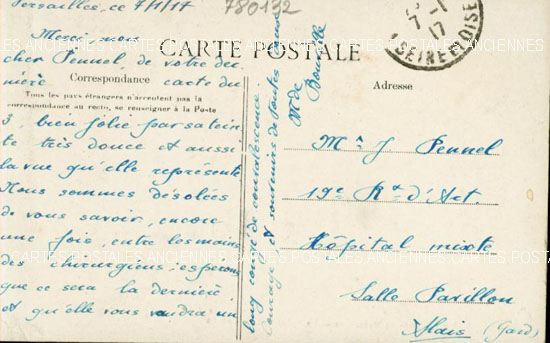 Versailles, ce 7/1/17
780132
7-1
17
SEINE ET OISE
CARTE POSTALE
Correspondance
Adresse
Tous les pays étrangers n'acceptent pas la
correspondance au recto, se renseigner à la Poste
Merci, mon
cher Pennel, de votre der
nière carte du
3, bien jolie par sa tein
te très douce et aussi
la vue qu'elle représente
Nous sommes désolées
de vous savoir, encore
une fois, entre les mains
des chirurgiens; espérons
que ce sera la dernière
et qu'elle vous vaudra un
long congé de convalescence.
Courage et souvenirs de toutes
Mme
Mr J Pennel
19e Rt d'Art.
Hôpital mixte
Salle Pavillon
Alais (Gard)
CARTES POSTALES ANCIENNES